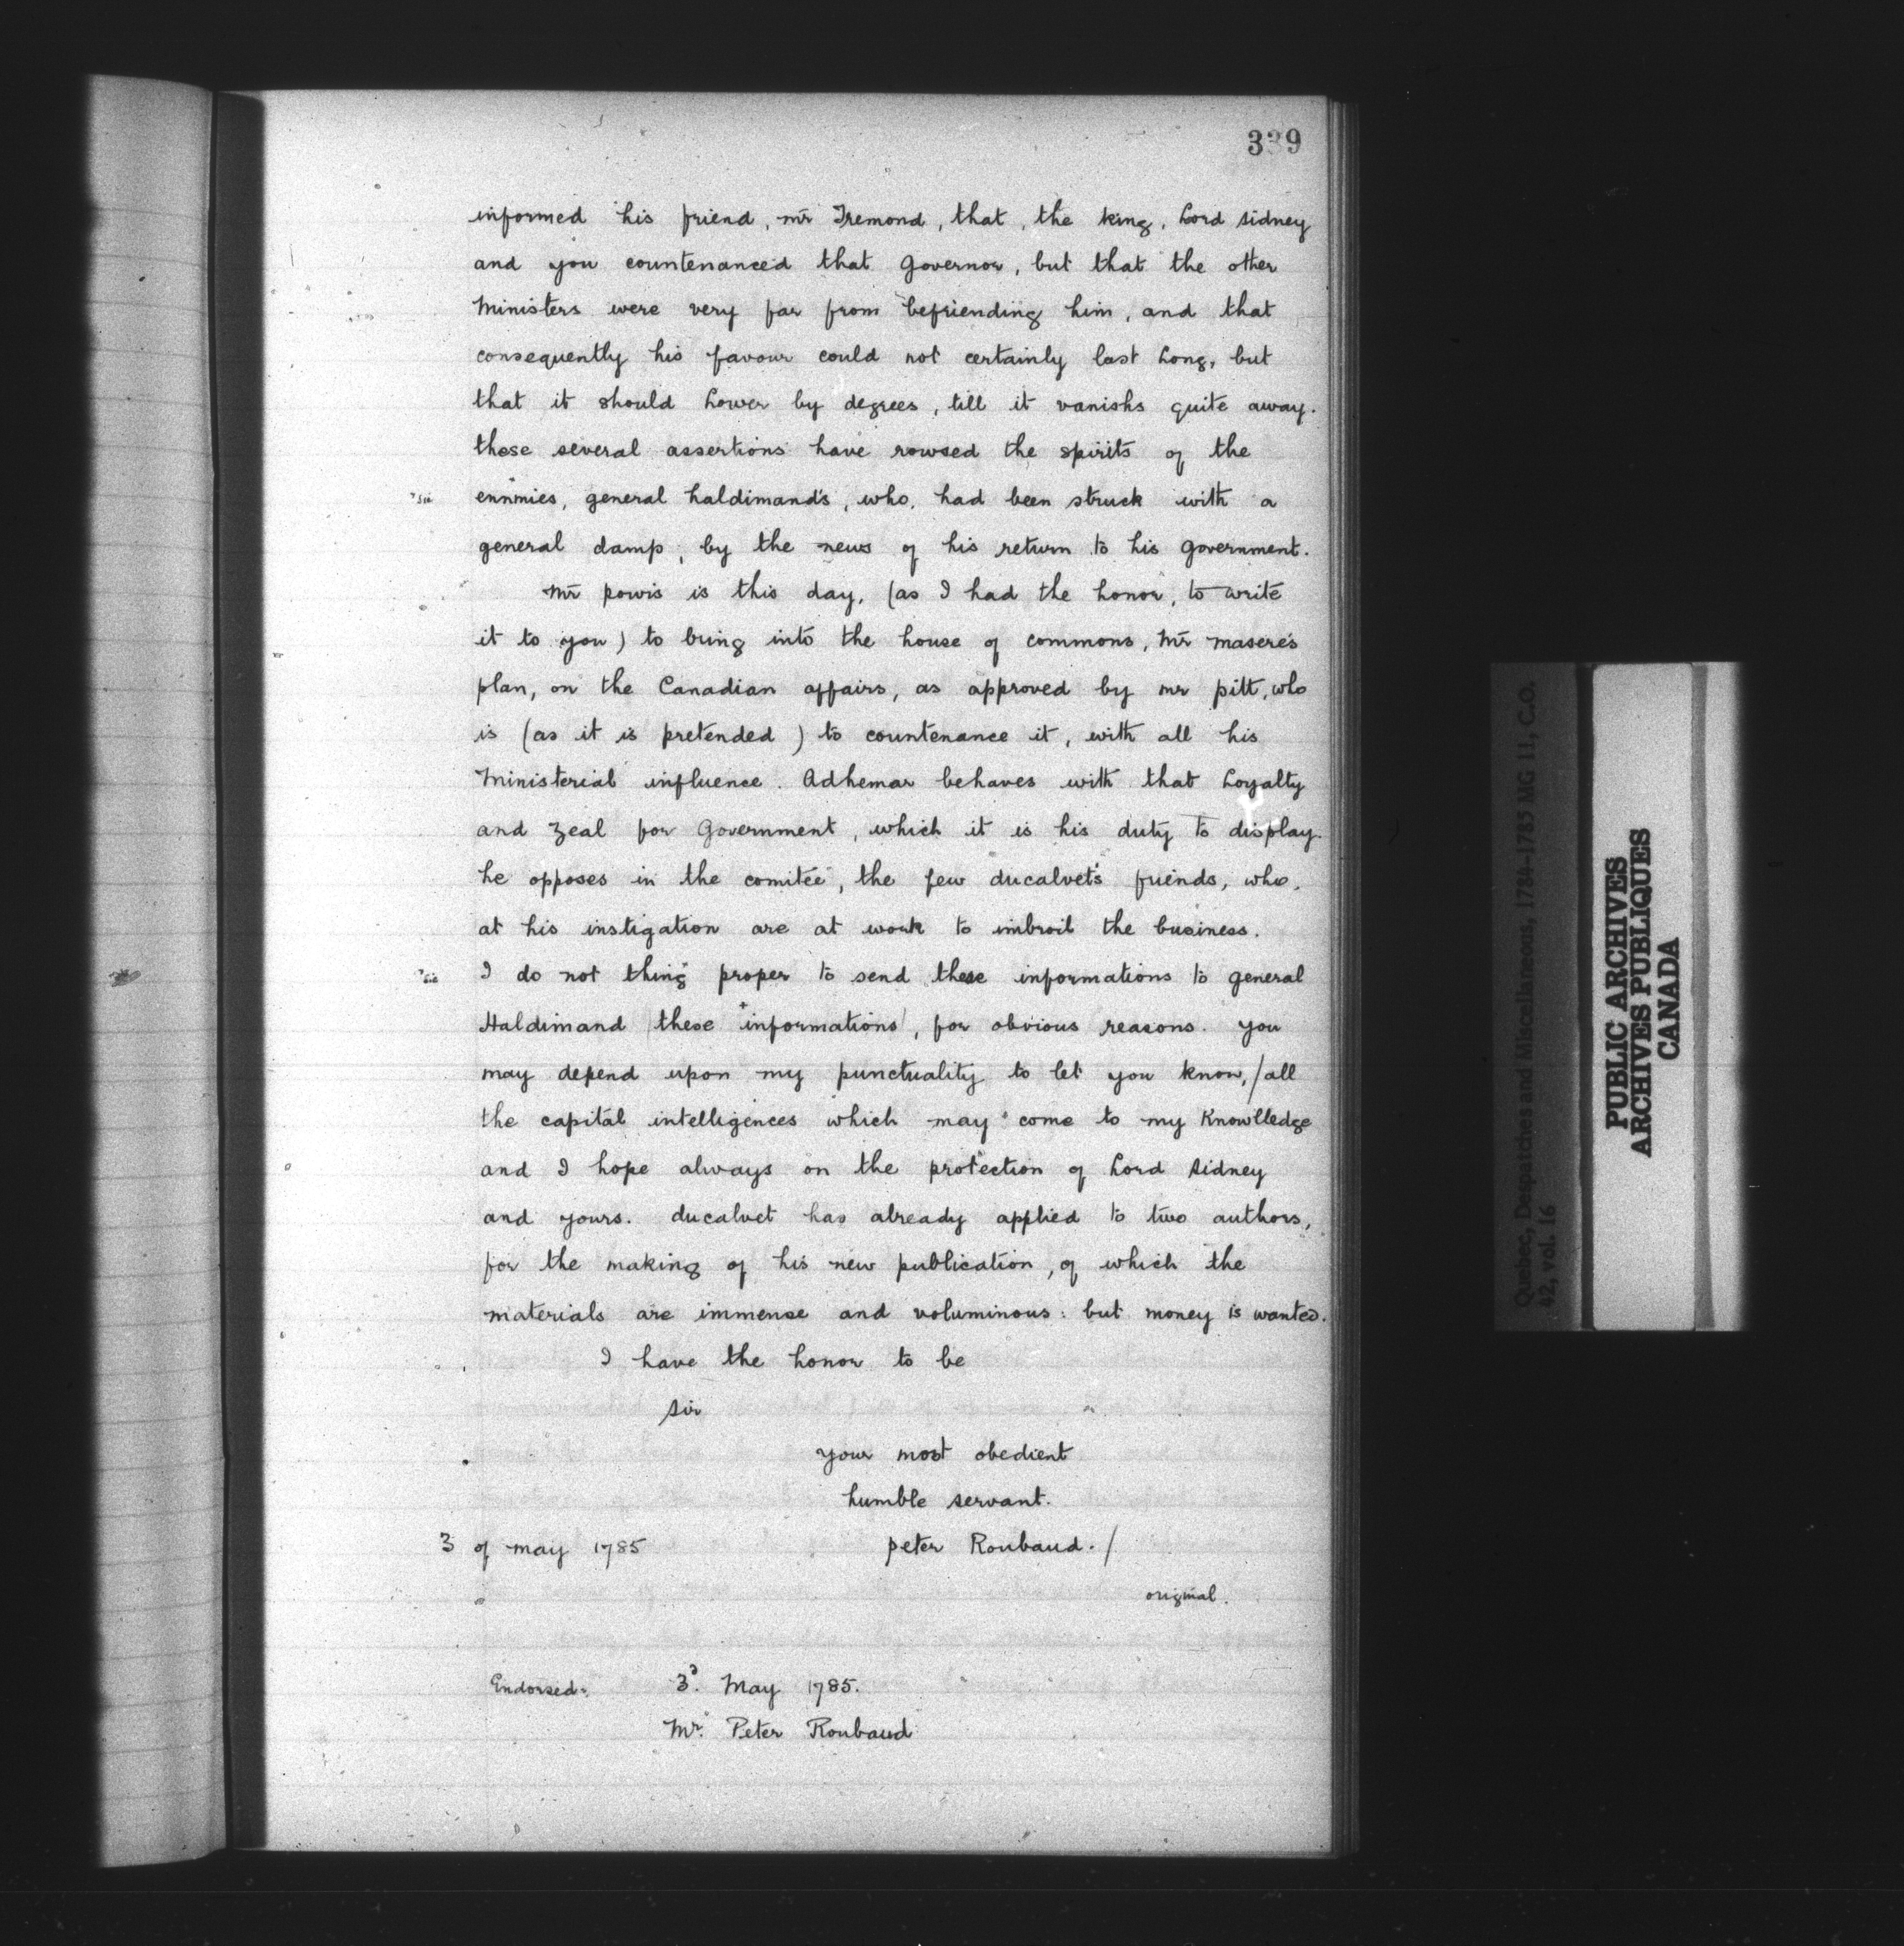 339
informed his friend, mr Tremond, that, the king, Lord sidney
and you countenanced that governor, but that the other
Ministers were very far from befriending him, and that
consequently his favour could not certainly last Long, but
that it should Lower by degrees, till it vanishs quite away.
those several assertions have rowsed the spirits of the
"sic ennmies, general haldimand's, who, had been struck with a
general damp, by the news of his return to his government.
Mr powis is this day, (as I had the honor, to write
it to you) to bring into the house of commons, Mr masere's
plan, on the Canadian affairs, as approved by mr pitt, who
is (as it is pretended) to countenance it, with all his
Ministerial influence. Adhemar behaves with that Loyalty
and zeal for Government, which it is his duty to display.
he opposes in the comitee, the few ducalvet's friends, who,
at his instigation are at work to imbroil the business.
"sic I do not thing" proper to send these informations to general
Haldimand (these + informations), for obvious reasons. you
may depend upon my punctuality to let you know, / all
the capital intelligences which may come to my Knowlledge
and I hope always on the protection of Lord sidney
and yours. ducalvet has already applied to two authors,
for the making of his new publication, of which the
materials are immense and voluminous: but money is wanted.
I have the honor to be
sir
your most obedient
humble servant.
3 of may 1785 peter Roubaud. /
original.
Endorsed: 3d. May 1785.
Mr. Peter Roubaud
Quebec, Despatches and Miscellaneous, 1784-1785 MG 11, C.O.
42, vol. 16
PUBLIC ARCHIVES
ARCHIVES PUBLIQUES
CANADA